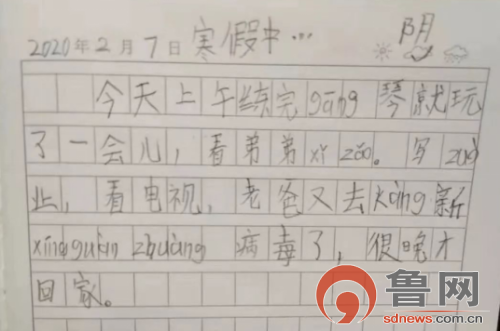 2020年2月7日 寒假中… 阴
今天上午练完gāng琴就玩
了一会儿,看弟弟xǐ zǎo。写zuò
业,看电视,老爸又去kàng新
xíng guàn zhuàng 病毒了,很晚才
回家。
鲁网
sdnews.com.cn